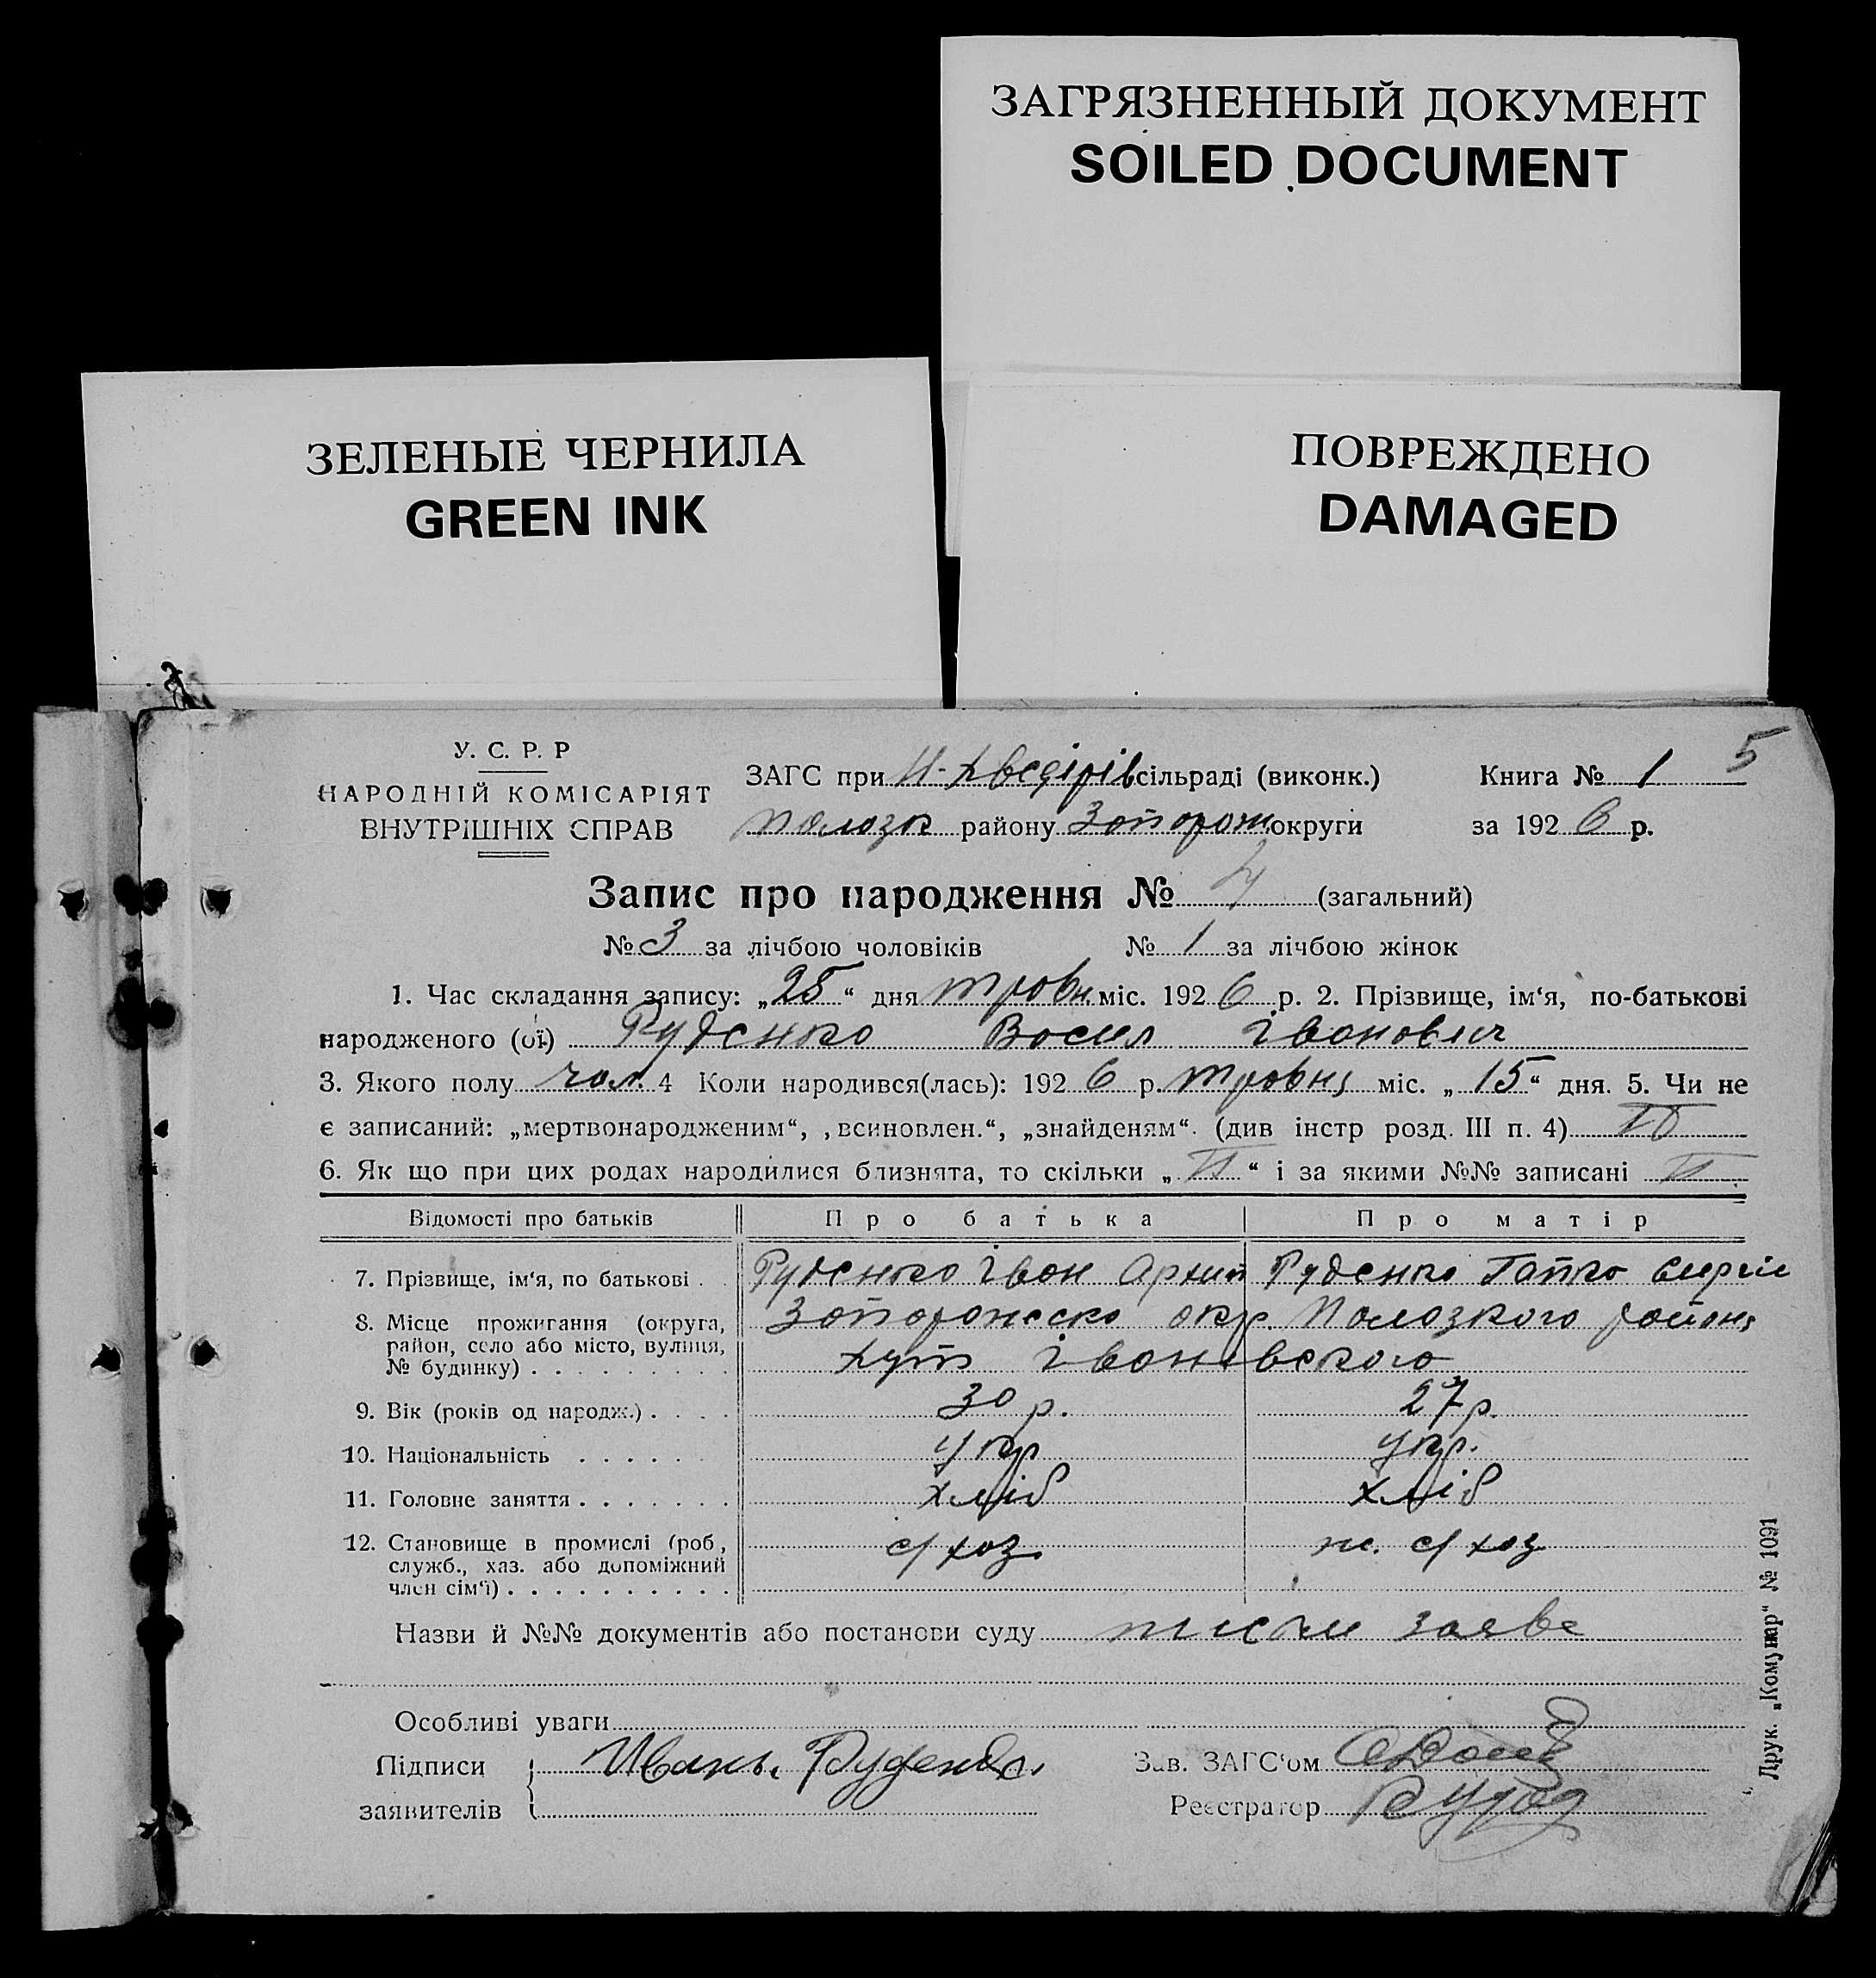 ЗАГРЯЗНЕННЫЙ ДОКУМЕНТ
SOILED DOCUMENT
ЗЕЛЕНЫЕ ЧЕРНИЛА
GREEN INK
ПОВРЕЖДЕНО
DAMAGED
5
У. С. Р. Р
НАРОДНІЙ КОМІСАРІЯТ
ВНУТРІШНІХ СПРАВ
ЗАГС при сільраді (виконк.) Книга № 1
Полозк району Запорож округи за 192 6 р.
Запис про народження № 4 (загальний)
№ 3 за лічбою чоловіків № 1 за лічбою жінок
1. Час складання запису: „25“ дня травн міс. 192 6 р. 2. Прізвище, ім‘я, по-батькові
народженого (ої) Руденко Васил Іванович
3. Якого полу чол. 4 Коли народився(лась): 192 6 р. травня міс. „15“ дня. 5. Чи не
є записаний: „мертвонародженим“, „всиновлен.“, „знайденям“. (див інстр розд. III п. 4)
6. Як що при цих родах народилися близнята, то скільки „ “ і за якими №№ записані
Відомості про батьків Про батька Про матір
7. Прізвище, ім‘я, по батькові . Руденко Іван Архип Руденко Гапка Сергіи
8. Місце прожигання (округа, Запорожско окр. Полозкого района
район, село або місто, вулиця,
№ будинку) . . . . . . . . . хут Івановского
9. Вік (років од народж.) . . . . 30 р. 27 р.
10. Національність . . . . . . укр укр.
11. Головне заняття . . . . . . . хліб хліб
12. Становище в промислі (роб, с/хоз. ж. с/хоз
служб., хаз. або допоміжний
член сім‘ї) . . . . . . . . . .
Назви й №№ документів або постанови суду заяве
Особливі уваги
Підписи Иванъ Руденко Зав. ЗАГС‘ом
заявителів Реєстратор
Друк. „Комунар“ № 1091